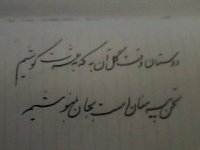 دوستان وقت گل آن به که بعشرت کوشیم
سخن پیر مغان است بجان بنیوشیم